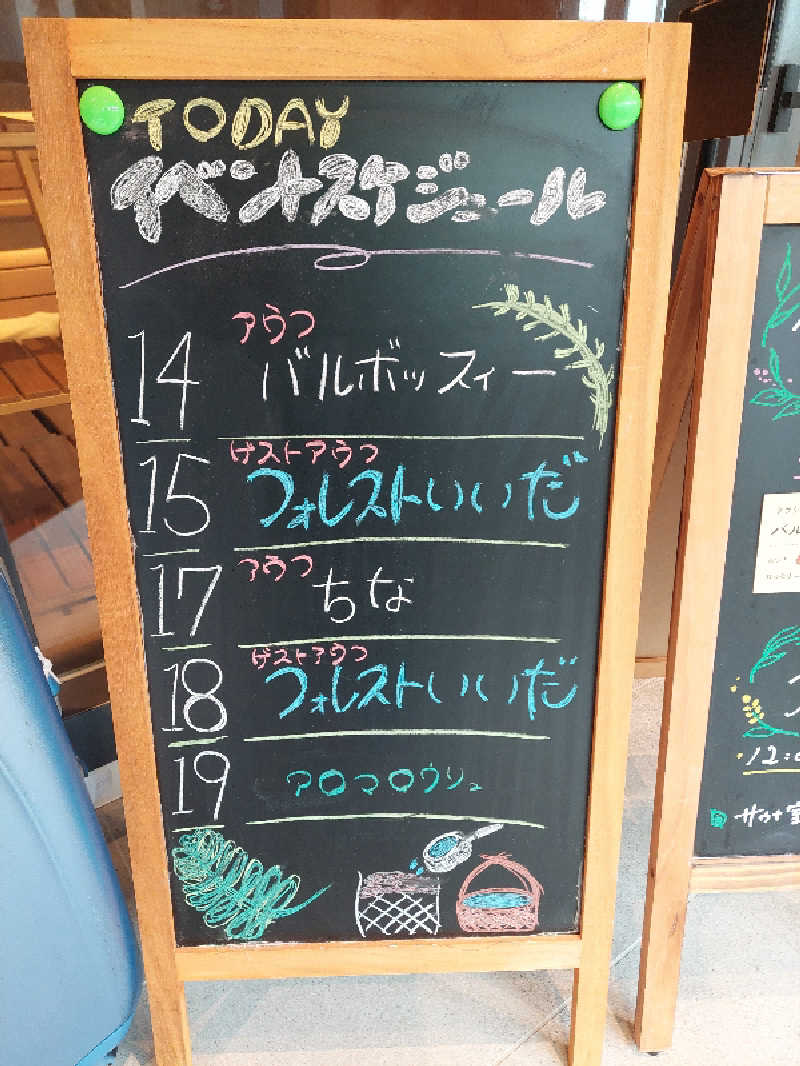 TODAY
イベントスケジュール
14 アウフ
バルボッスィー
15 ゲストアウフ
フォレストいいだ
17 アウフ
ちな
18 ゲストアウフ
フォレストいいだ
19 アロマロウリュ
バル
12:0
サウナ室